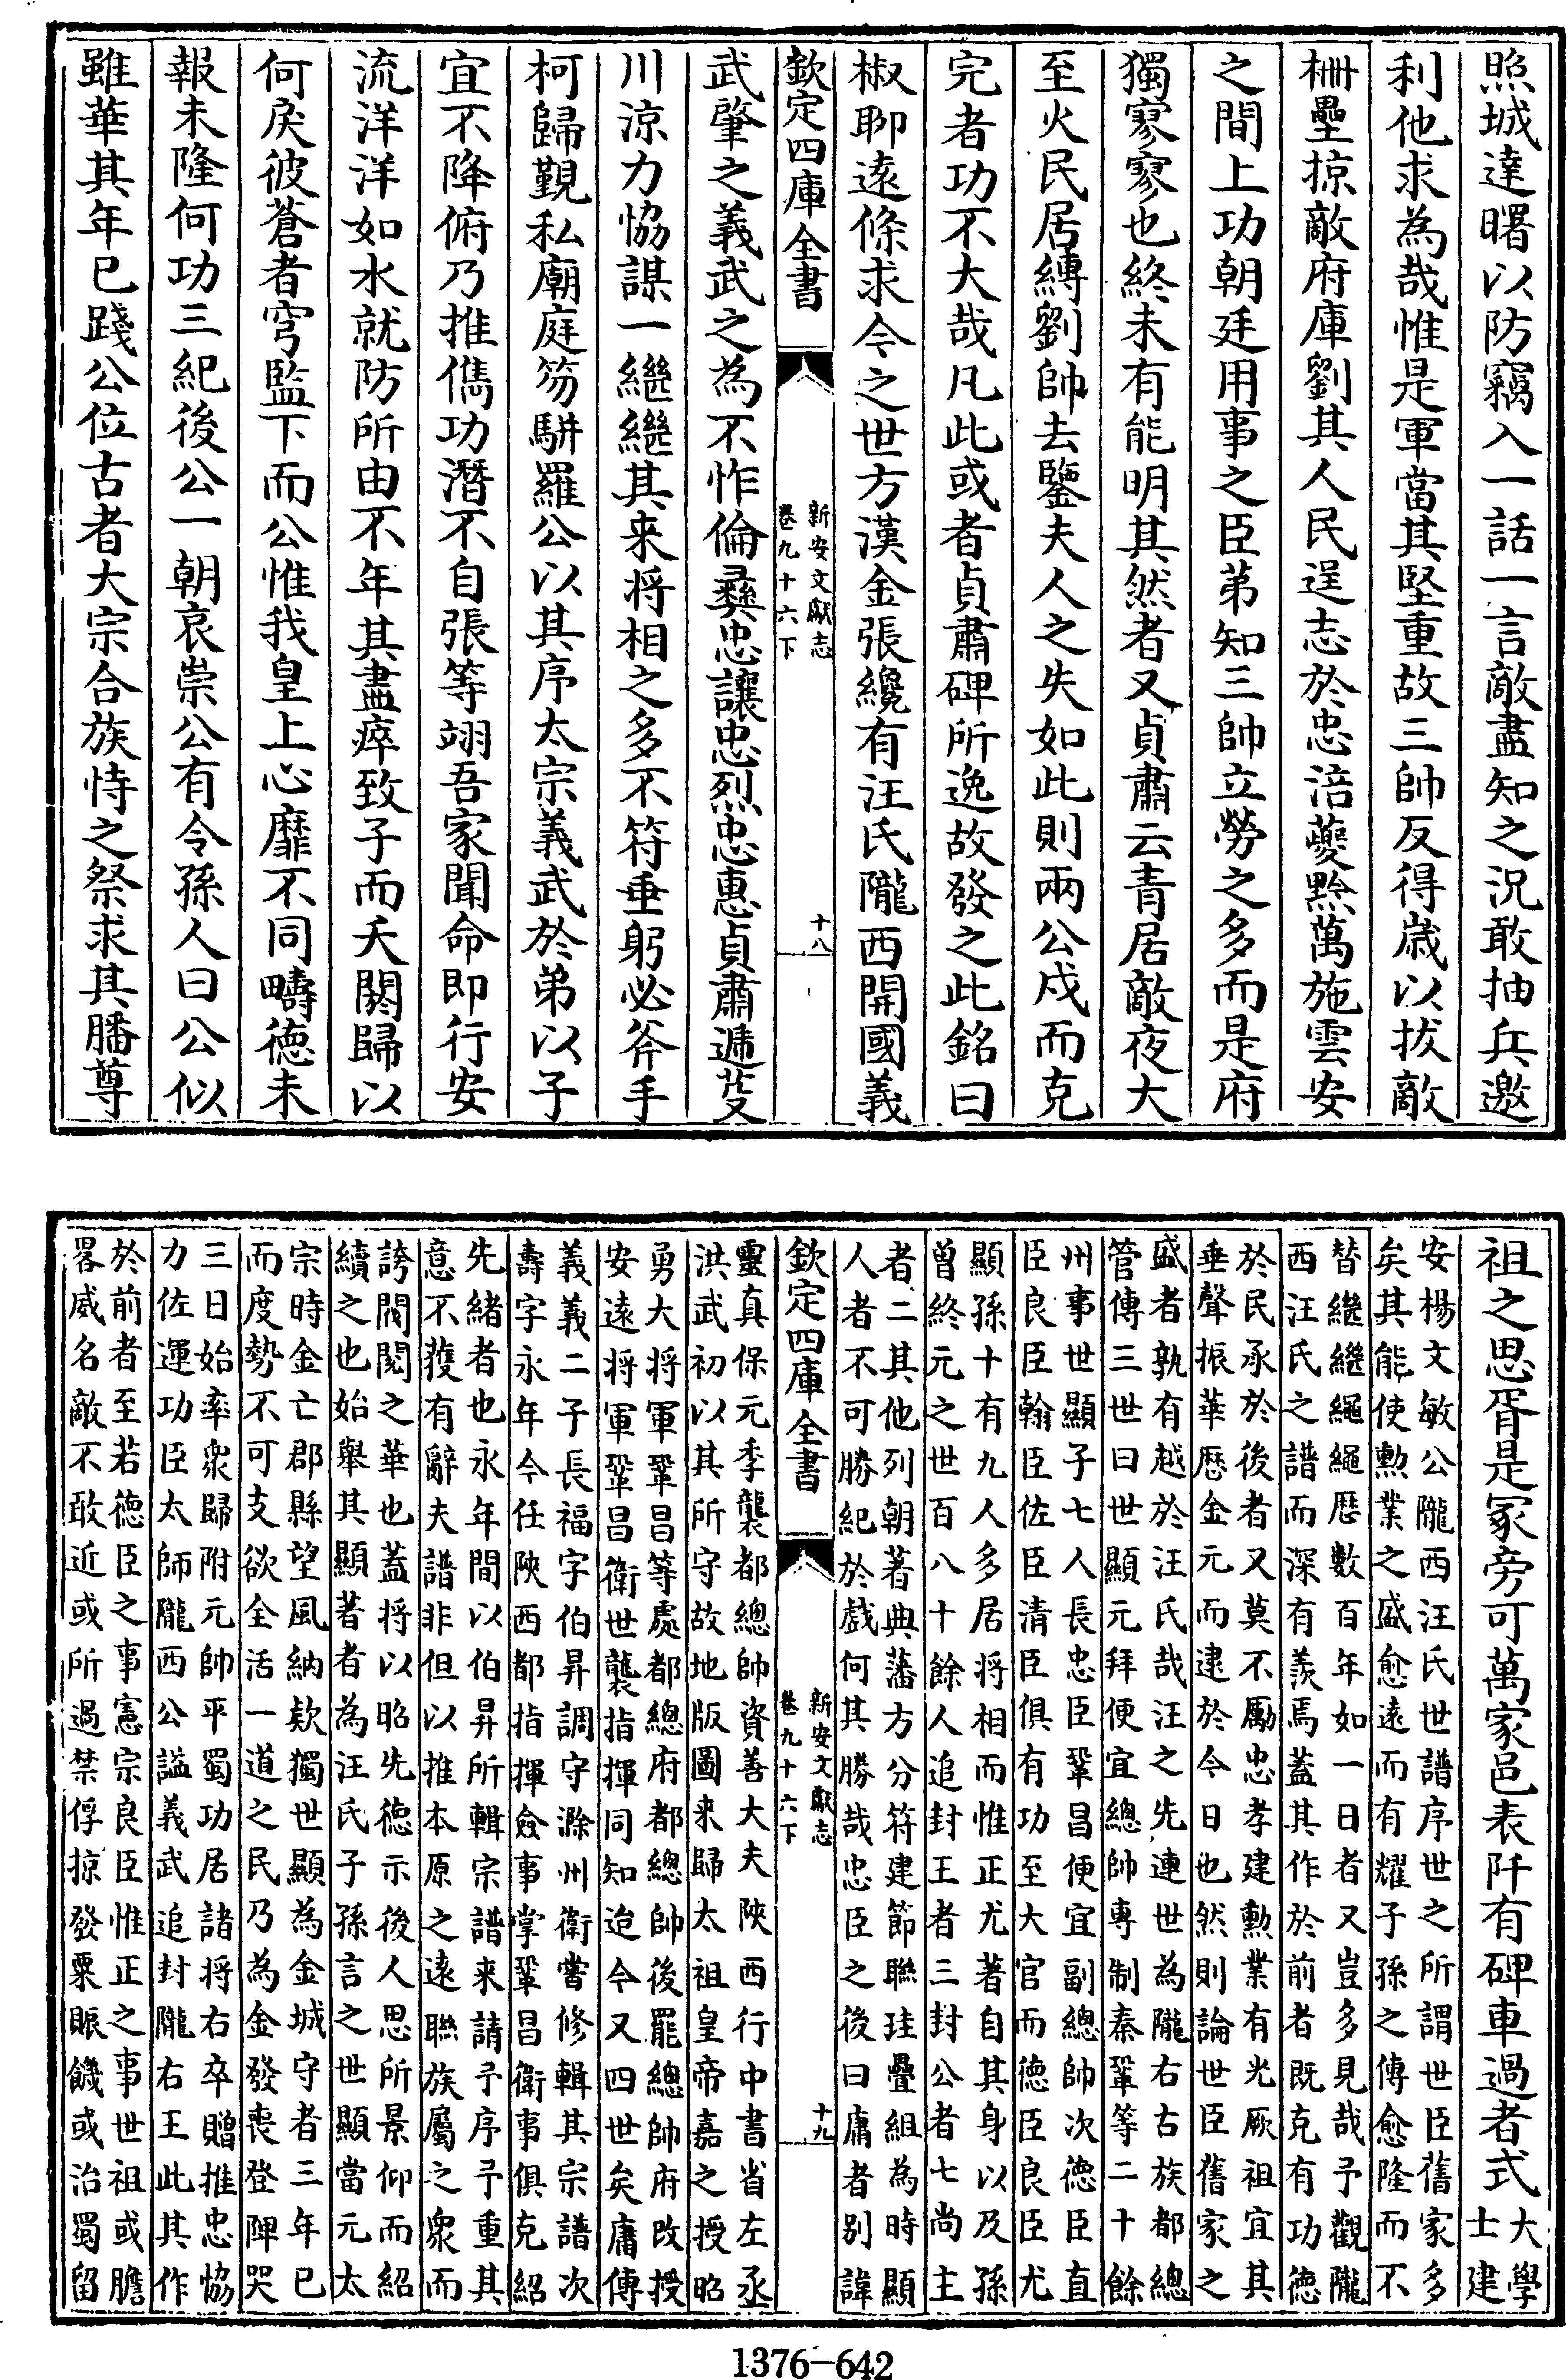 照城達曙以防竊入一話一言敵盡知之況敢抽兵邀
利他求為哉惟是軍當其堅重故三帥反得歲以拔敵
柵壘掠敵府庫劉其人民逞志於忠涪夔黔萬施雲安
之間上功朝廷用事之臣弟知三帥立勞之多而是府
獨寥寥也終未有能明其然者又貞肅云青居敵夜大
至火民居縛劉帥去鑒夫人之失如此則兩公戍而克
完者功不大哉凡此或者貞肅碑所逸故發之此銘曰
椒聊遠條求今之世方漢金張纔有汪氏隴西開國義
欽定四庫全書
新安文獻志
卷九十六下
十八
武肇之義武之為不怍倫彞忠讓忠烈忠惠貞肅遞芟
川涼力恊謀一繼繼其来将相之多不符垂躬必斧手
柯歸覲私廟庭笏駢羅公以其序太宗義武於弟以子
宜不降俯乃推儁功潛不自張等翊吾家聞命即行安
流洋洋如水就防所由不年其盡瘁致子而夭閼歸以
何戾彼蒼者穹監下而公惟我皇上心靡不同疇徳未
報未隆何功三紀後公一朝哀崇公有令孫人曰公似
雖華其年已踐公位古者大宗合族恃之祭求其膰尊
祖之思胥是冢旁可萬家邑表阡有碑車過者式
大學
士建
安楊文敏公隴西汪氏世譜序世之所謂世臣舊家多
矣其能使勲業之盛愈逺而有耀子孫之傳愈隆而不
替繼繼繩繩厯數百年如一日者又豈多見哉予觀隴
西汪氏之譜而深有羨焉蓋其作於前者既克有功徳
於民承於後者又莫不勵忠孝建勲業有光厥祖宜其
垂聲振華厯金元而逮於今日也然則論世臣舊家之
盛者孰有越於汪氏哉汪之先連世為隴右古族都總
管傳三世曰世顯元拜便宜總帥專制秦鞏等二十餘
州事世顯子七人長忠臣鞏昌便宜副總帥次徳臣直
臣良臣翰臣佐臣清臣俱有功至大官而徳臣良臣尤
顯孫十有九人多居将相而惟正尤著自其身以及孫
曾終元之世百八十餘人追封王者三封公者七尚主
者二其他列朝著典藩方分符建節聯珪疊組為時顯
人者不可勝紀於戲何其勝哉忠臣之後曰庸者别諱
欽定四庫全書
新安文獻志
卷九十六下
十九
靈真保元季襲都總帥資善大夫陝西行中書省左丞
洪武初以其所守故地版圖来歸太祖皇帝嘉之授昭
勇大将軍鞏昌等處都總府都總帥後罷總帥府改授
安逺将軍鞏昌衛世襲指揮同知迨今又四世矣庸傳
義義二子長福字伯昇調守滁州衛嘗修輯其宗譜次
壽字永年今任陝西都指揮僉事掌鞏昌衛事俱克紹
先緒者也永年間以伯昇所輯宗譜来請予序予重其
意不獲有辭夫譜非但以推本原之逺聯族屬之衆而
誇閥閲之華也蓋将以昭先徳示後人思所景仰而紹
續之也始舉其顯著者為汪氏子孫言之世顯當元太
宗時金亡郡縣望風納欵獨世顯為金城守者三年已
而度勢不可支欲全活一道之民乃為金發喪登陴哭
三日始率衆歸附元帥平蜀功居諸将右卒贈推忠恊
力佐運功臣太師隴西公諡義武追封隴右王此其作
於前者至若徳臣之事憲宗良臣惟正之事世祖或膽
畧威名敵不敢近或所過禁俘掠發粟賑饑或治蜀留
1376-642